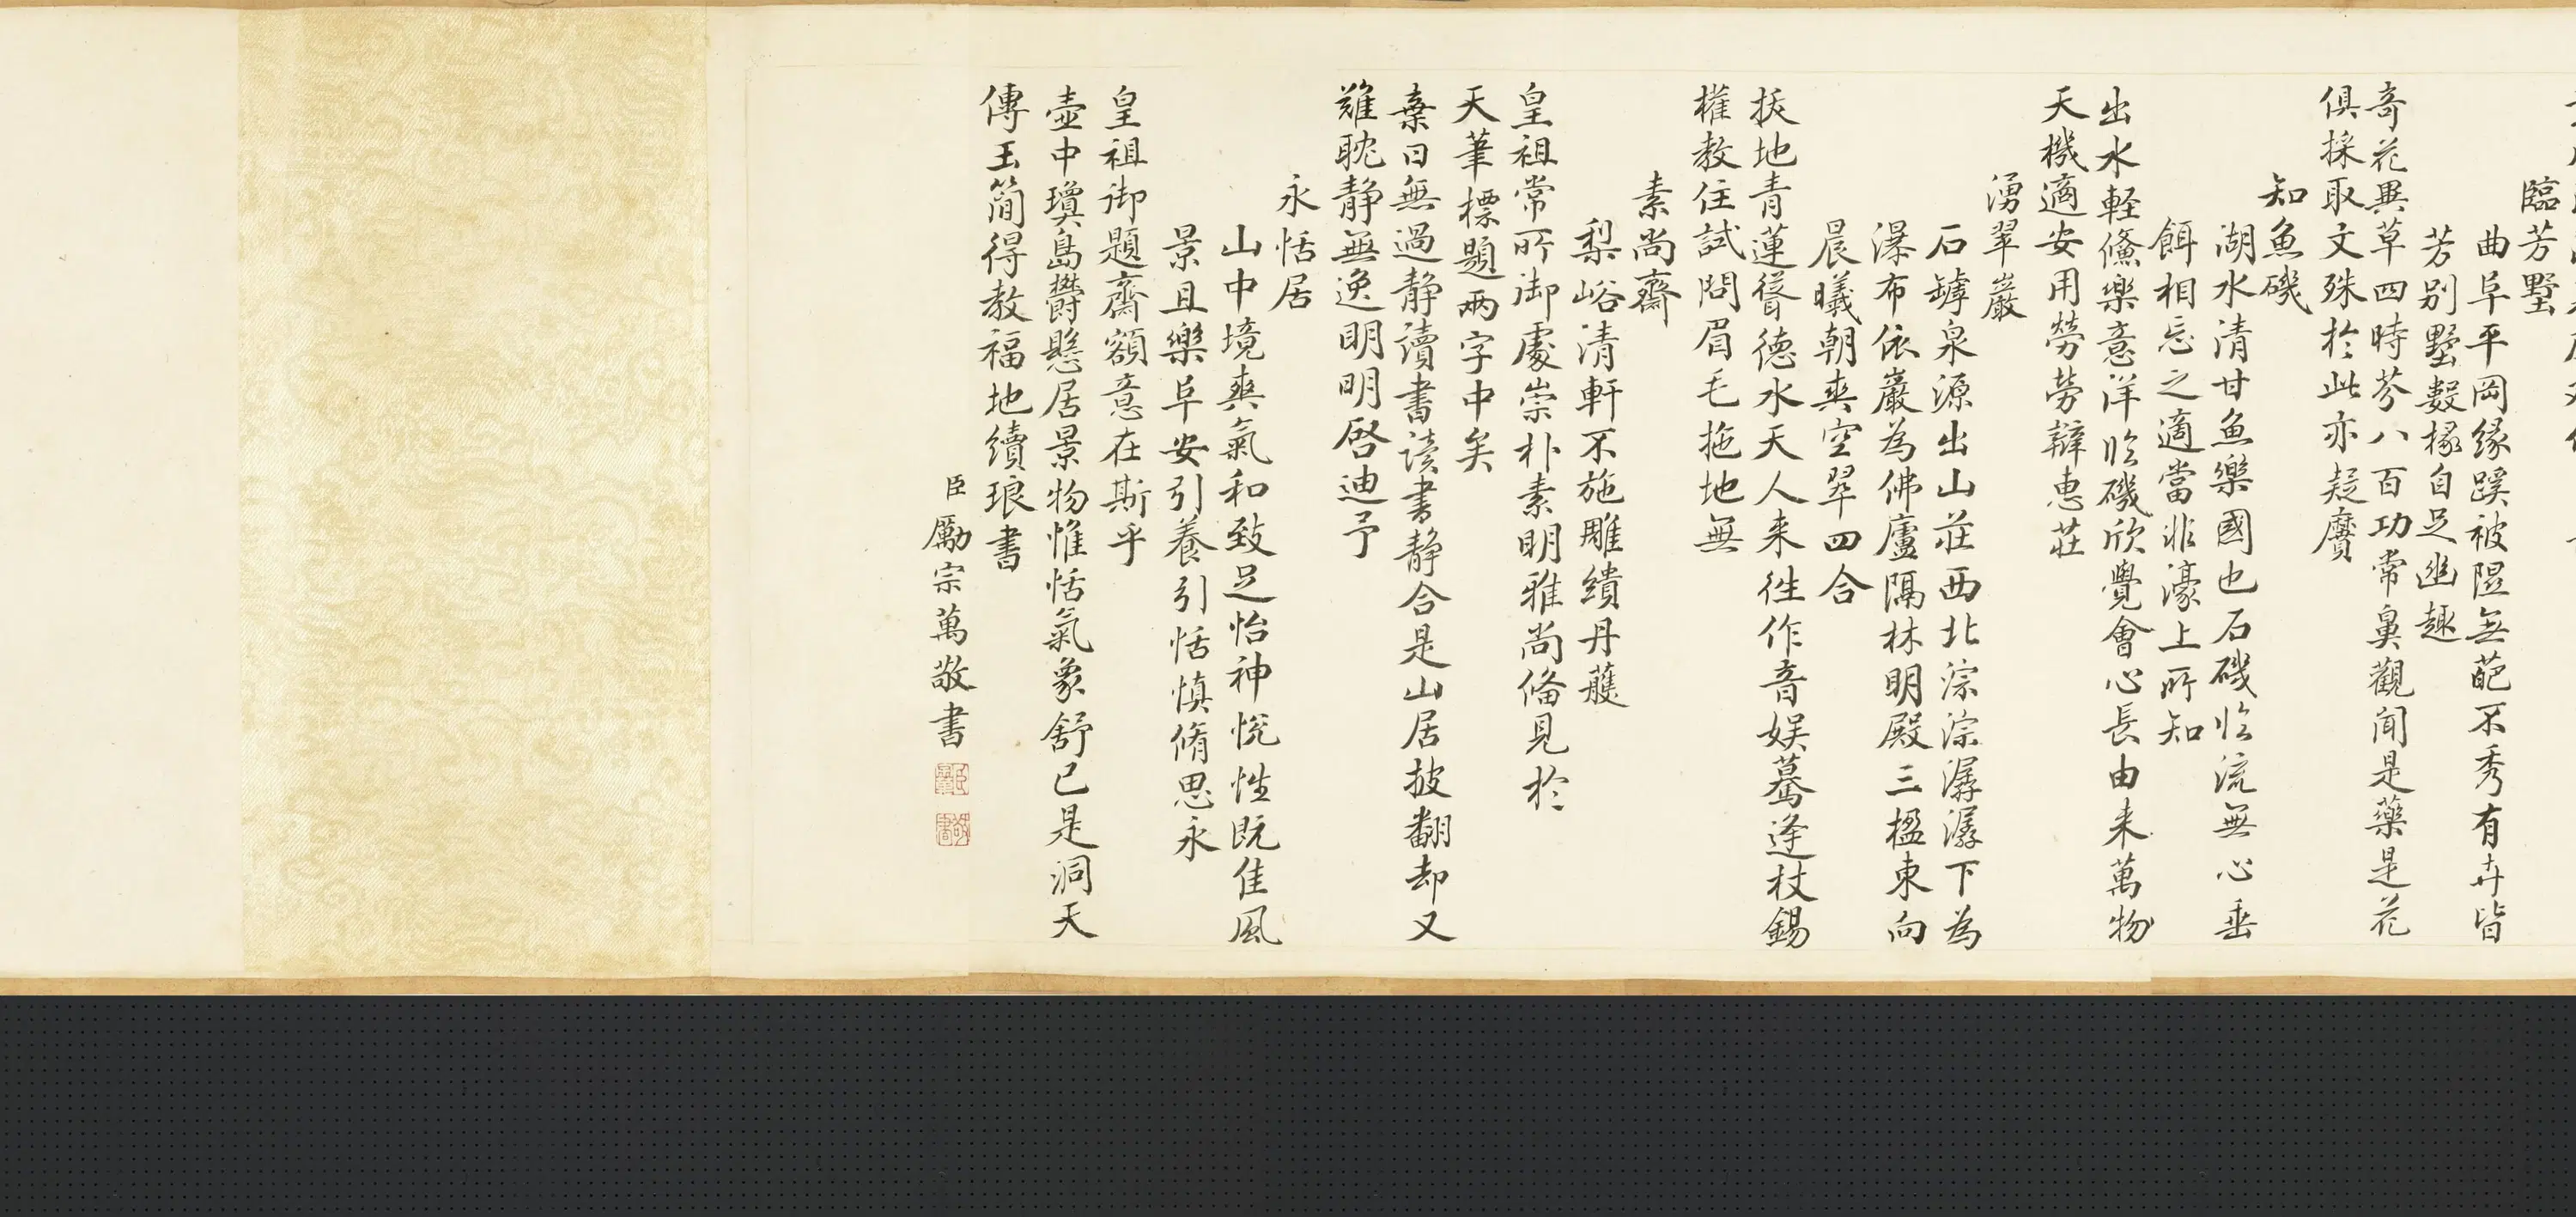 臨芳墅
曲阜平岡緣蹊被隰無葩不秀有卉皆
芳別墅數椽自足幽趣
奇花異草四時芬八百功常鼻觀聞是藥是花
俱採取文殊於此亦疑
知魚磯
湖水清甘魚樂國也石磯臨流無心垂
餌相忘之適當非濠上所知
出水輕鯈樂意洋臨磯欣覺會心長由来萬物
天機適安用勞勞辯惠莊
湧翠巖
石罅泉源出山莊西北淙淙潺潺下為
瀑布依巖為佛廬隔林明殿三楹東向
晨曦朝爽空翠四合
掞地青蓮聳德水天人来往作音娱驀逢杖錫
權教住試問眉毛拖地無
素尚齋
梨峪清軒不施雕繢丹雘
皇祖常所御處崇朴素明雅尚俻見於
天筆標題兩字中矣
棄日無過静讀書读書静合是山居披翻却又
難耽静無逸明明启迪予
永恬居
山中境爽氣和致足怡神悦性既佳風
景且樂阜安引養引恬慎脩思永
皇祖御題齋額意在斯乎
壺中瓊島欝懸居景物惟恬氣象舒已是洞天
傳玉簡得教福地續琅書
臣勵宗萬敬書